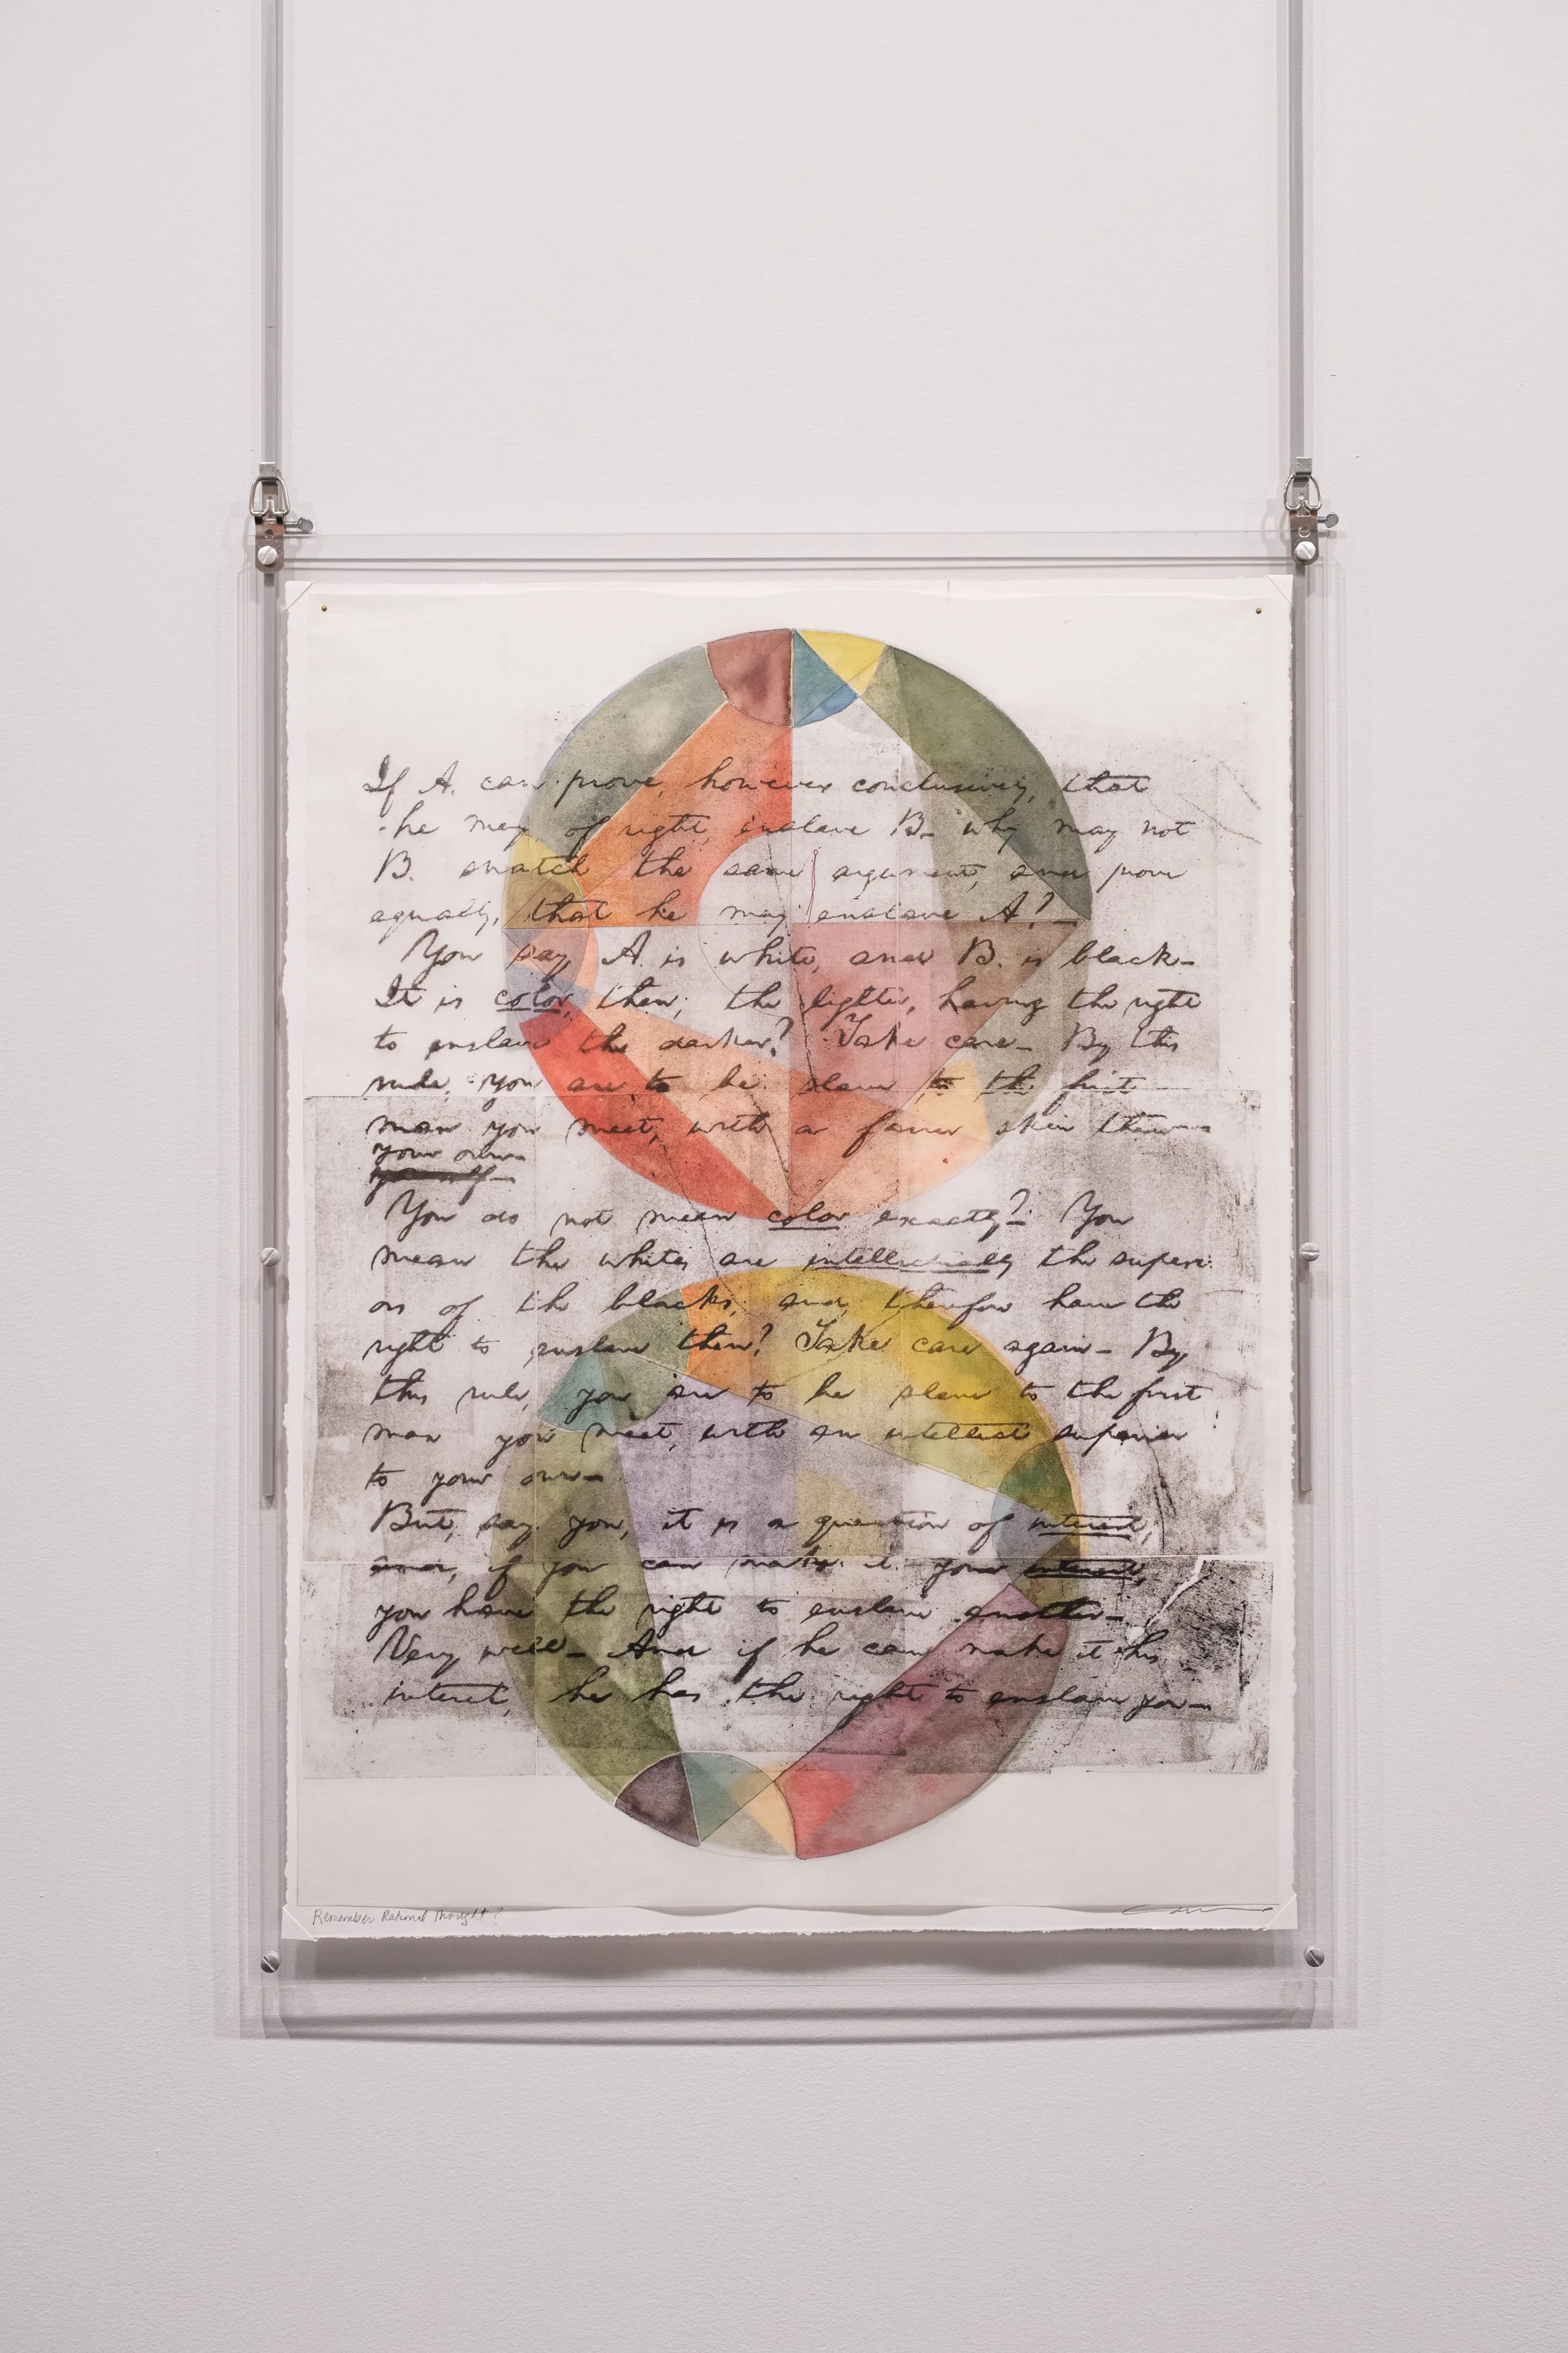 If A. can prove, however conclusively, that
he may, of right, enslave B— why may not
B. snatch the same argument, and prove
equally, that he may enslave A?—
You say A. is white, and B. is black—
It is color, then; the lighter, having the right
to enslave the darker? Take care— By this
rule, you are to be slave to the first
man you meet, with a fairer skin than
your own—
You do not mean color exactly?— You
mean the whites are intellectually the superi-
ors of the blacks, and, therefore have the
right to enslave them? Take care again— By
this rule, you are to be slave to the first
man you meet, with an intellect superior
to your own—
But, say you, it is a question of interest;
and, if you can make it your interest,
you have the right to enslave another—
Very well— And if he can make it his
interest, he has the right to enslave you—
Remember Rational Thought?